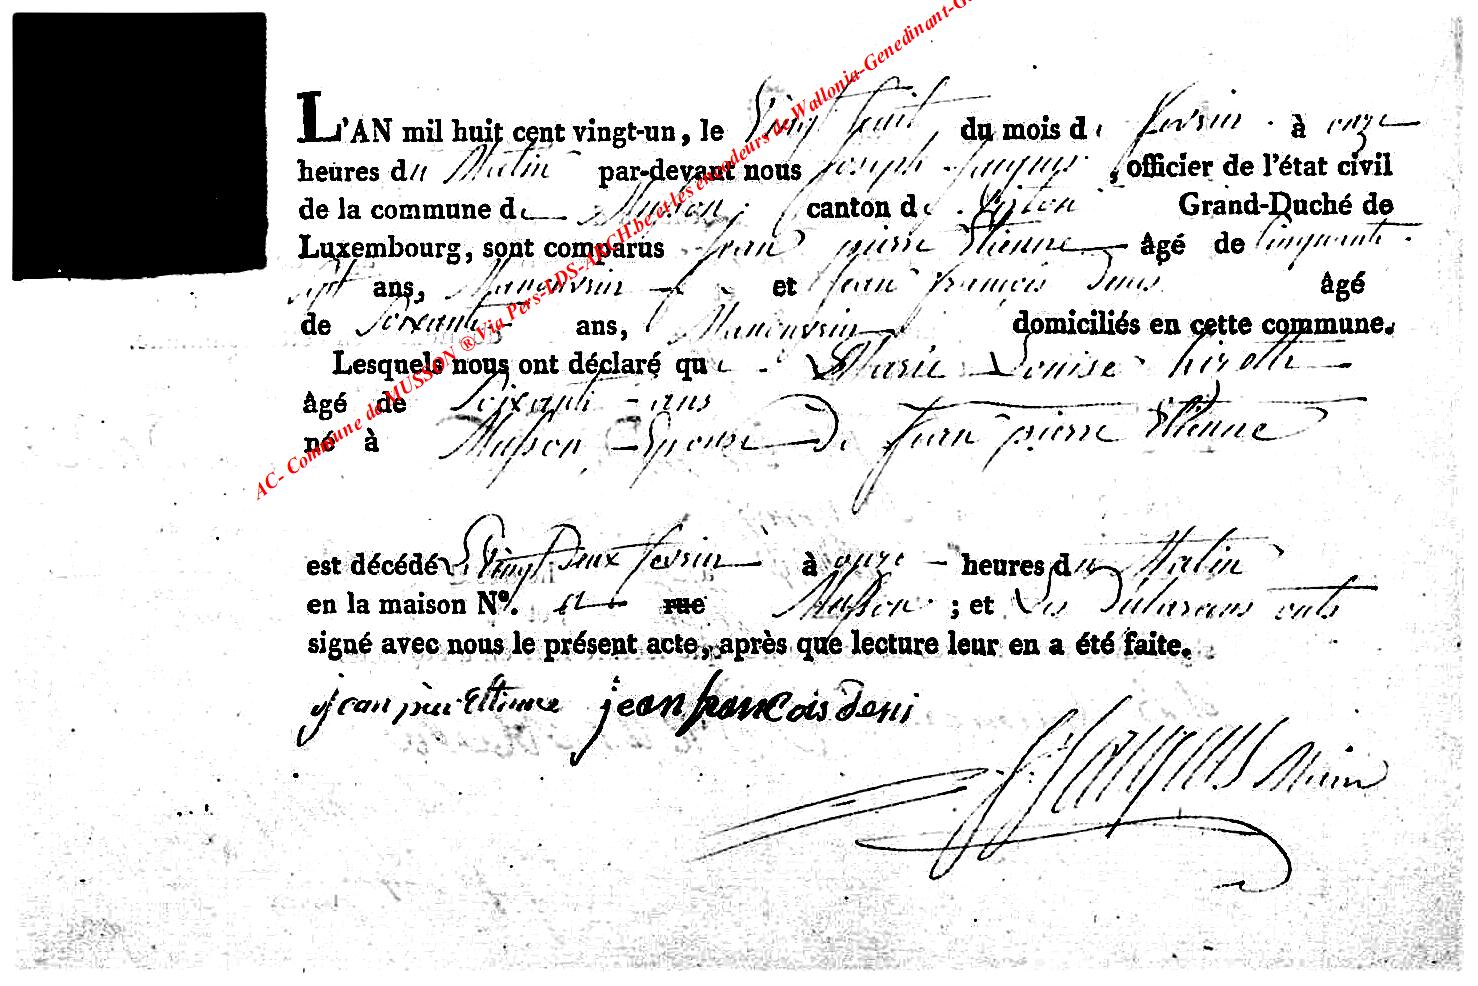 L'AN mil huit cent vingt-un, le Vingt huit du mois de fevrier à onze
heures du Matin par-devant nous joseph jacques, officier de l'état civil
de la commune de Musson, canton de Virton Grand-Duché de
Luxembourg, sont comparus jean pierre Etienne âgé de Cinquante
sept ans, Manouvrier et jean françois Denis âgé
de Soixante ans, Manouvrier domiciliés en cette commune.
Lesquels nous ont déclaré que Marie Louise hizette
âgé de Soixante ans
né à Musson Epouse De jean pierre Etienne
est décédé Le Vingt Deux fevrier à onze heures du Matin
en la maison N°. rue Musson ; et Les Declarans onts
signé avec nous le présent acte, après que lecture leur en a été faite.
jean pier Etienne jean francois deni
J. Jacques Maire
AC- Commune de MUSSON ® Via Pers-LDS-ARCH.be et les encodeurs de Wallonia-Genedinant-G